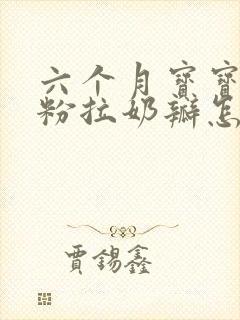 六个月寶寶
粉拉奶瓣怎
賈錫鑫